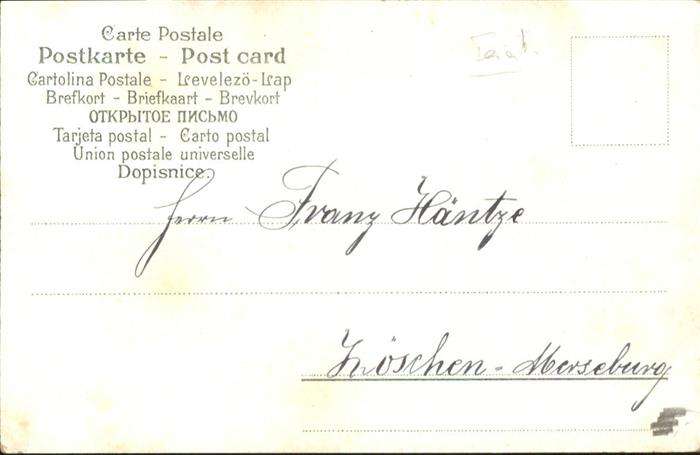 Carte Postale
Postkarte - Post card
Cartolina Postale - Levelezö-Lap
Brefkort - Briefkaart - Brevkort
ОТКРЫТОЕ ПИСЬМО
Tarjeta postal - Carto postal
Union postale universelle
Dopisnice.
Herrn Franz Häntze
Zöschen - Merseburg